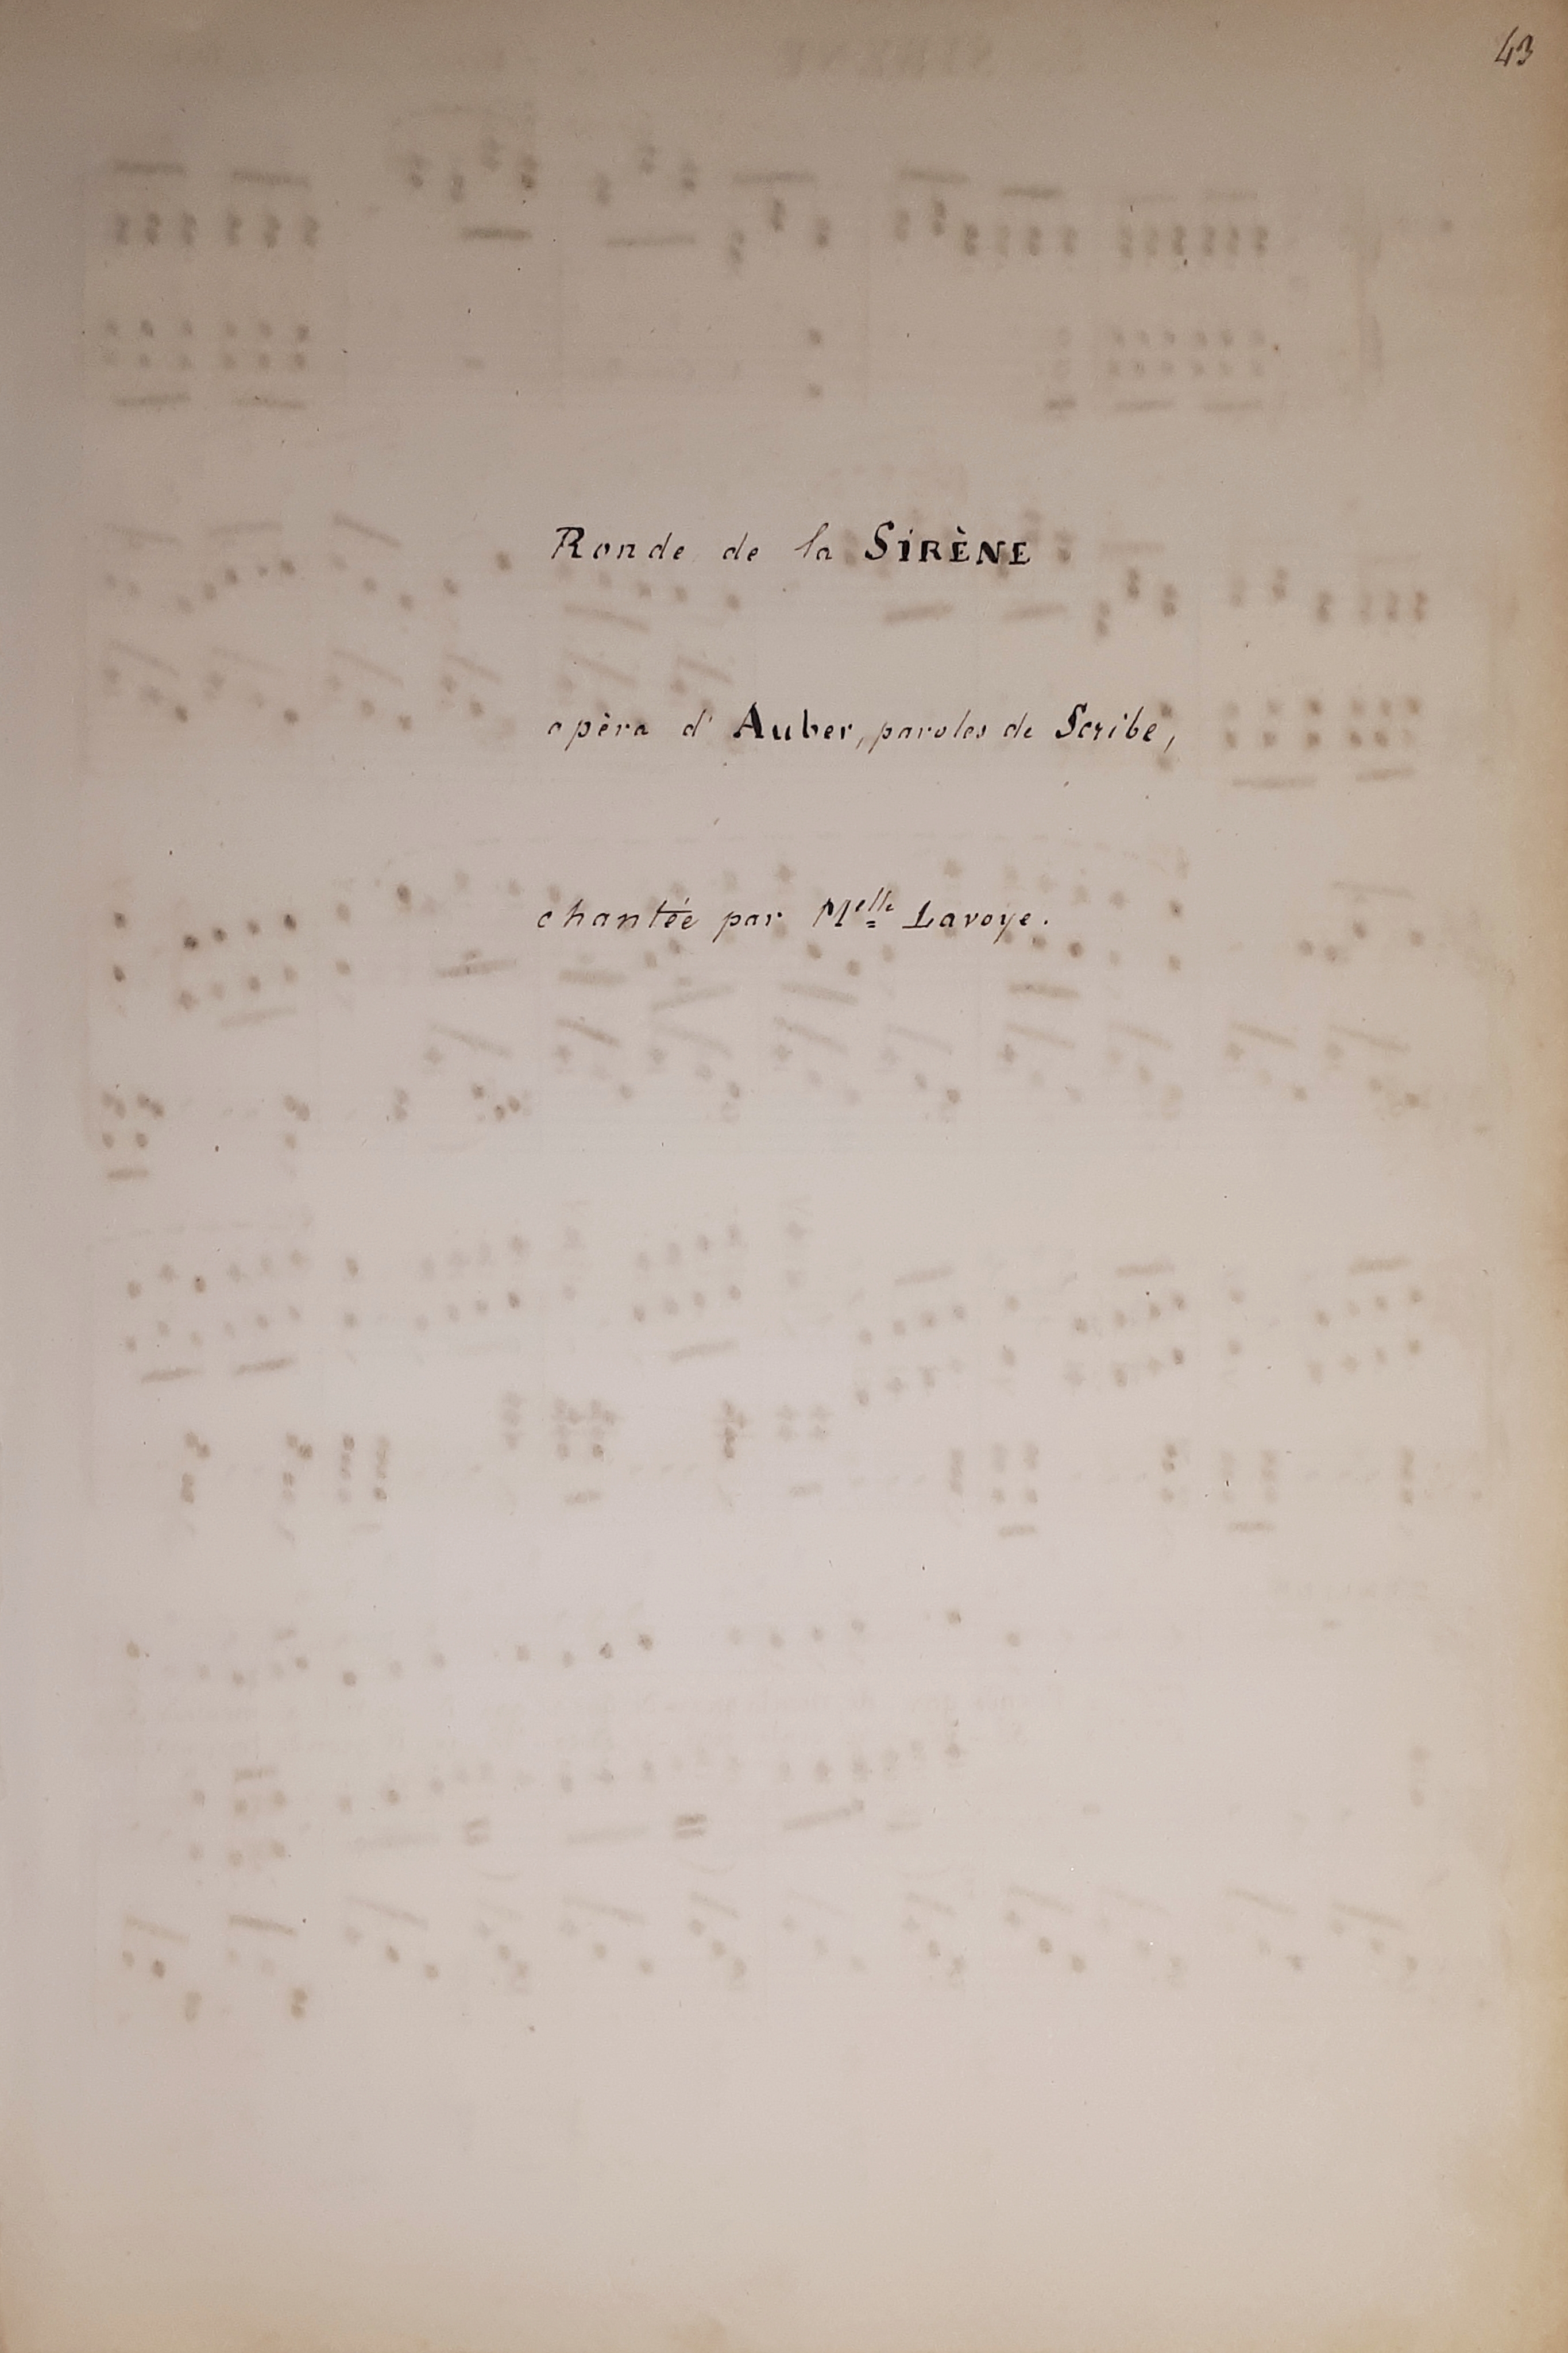 43
Ronde de la SIRÈNE
opèra d'Auber, paroles de Scribe,
chantée par Melle Lavoye.